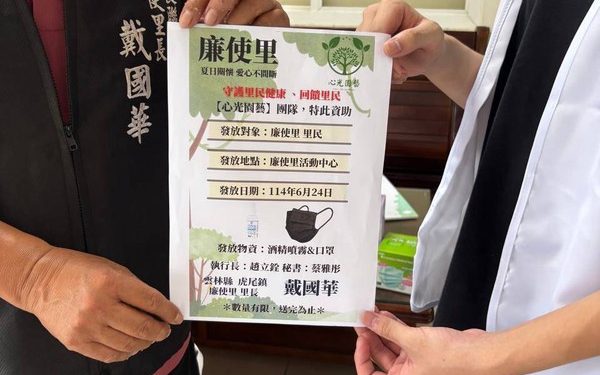 使里長
戴國華
廉使里
夏日關懷 愛心不間斷
心光園藝
守護里民健康、回饋里民
【心光園藝】團隊，特此資助
發放對象：廉使里 里民
發放地點：廉使里活動中心
發放日期：114年6月24日
發放物資：酒精噴霧&口罩
執行長：趙立銓 秘書：蔡雅彤
雲林縣 虎尾鎮
廉使里 里長 戴國華
＊數量有限，送完為止＊